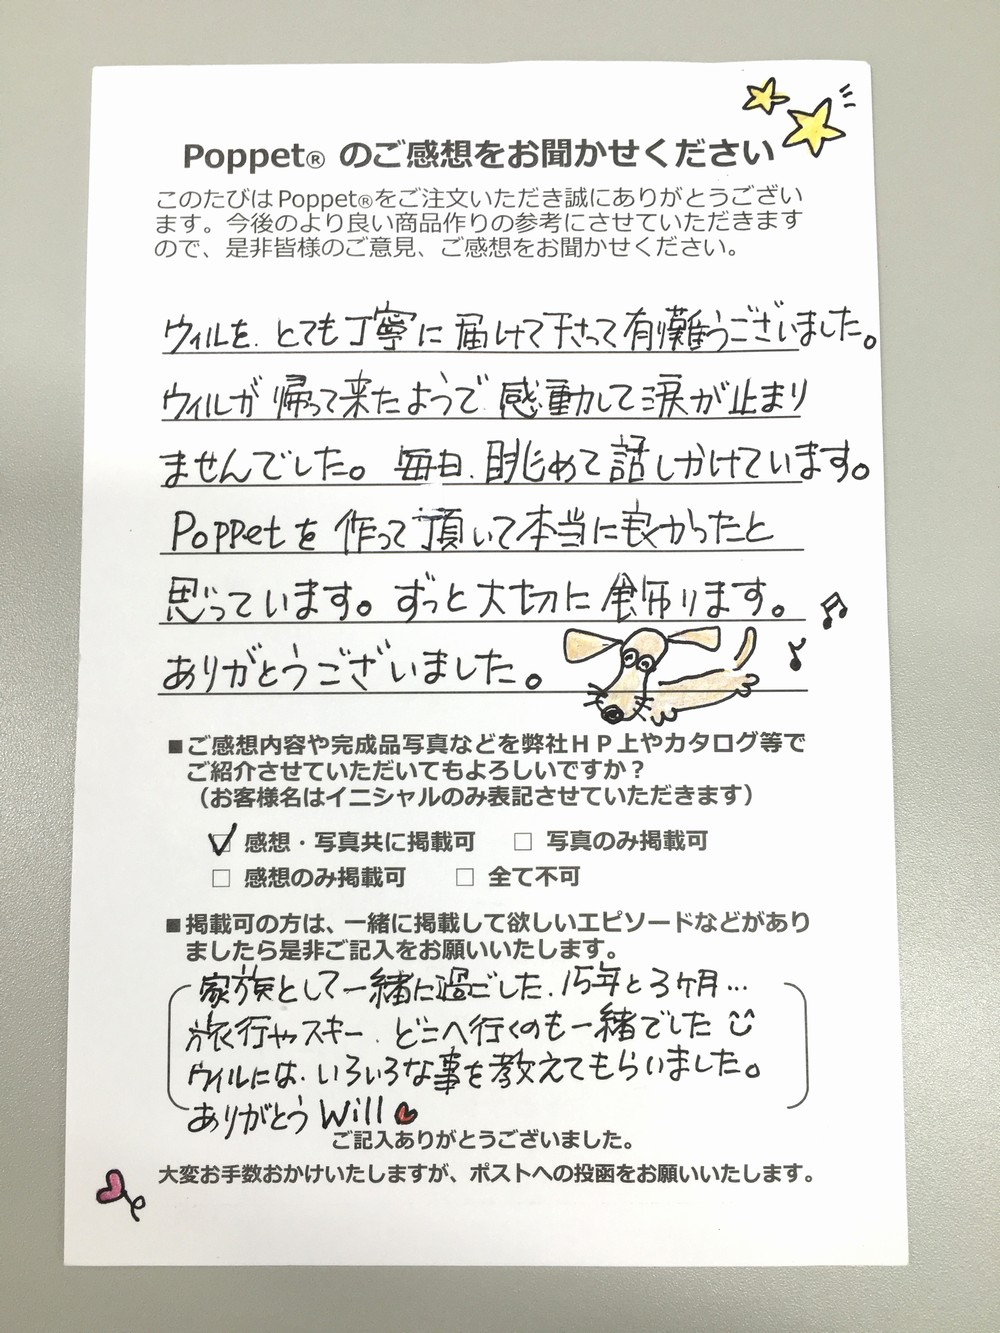 Poppet® のご感想をお聞かせください
このたびはPoppet®をご注文いただき誠にありがとうござい
ます。今後のより良い商品作りの参考にさせていただきます
ので、是非皆様のご意見、ご感想をお聞かせください。
ウィルを、とても丁寧に届けて下さって有り難うございました。
ウィルが帰って来たようで、感動して涙が止まり
ませんでした。毎日、眺めて話しかけています。
Poppetを作って頂いて本当に良かったと
思っています。ずっと大切に飾ります。
ありがとうございました。
■ご感想内容や完成品写真などを弊社HP上やカタログ等で
ご紹介させていただいてもよろしいですか？
（お客様名はイニシャルのみ表記させていただきます）
☑ 感想・写真共に掲載可 □ 写真のみ掲載可
□ 感想のみ掲載可 □ 全て不可
■掲載可の方は、一緒に掲載して欲しいエピソードなどがあり
ましたら是非ご記入をお願いいたします。
家族として一緒に過ごした、15年と3ヶ月…
旅行やスキー、どこへ行くのも一緒でした
ウィルには、いろいろな事を教えてもらいました。
ありがとう Will
ご記入ありがとうございました。
大変お手数おかけいたしますが、ポストへの投函をお願いいたします。